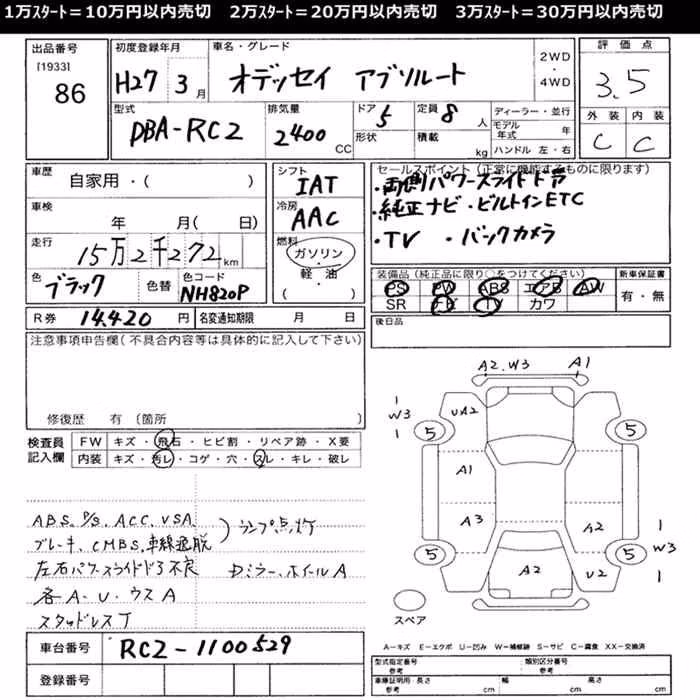 1万ｽﾀｰﾄ＝10万円以内売切　2万ｽﾀｰﾄ＝20万円以内売切　3万ｽﾀｰﾄ＝30万円以内売切
出品番号
[1933]
86
初度登録年月
H27 3月
車名・グレード
オデッセイ アブソルート
2WD
・
4WD
評価点
3.5
外装 内装
C C
型式
DBA-RC2
排気量
2400 CC
ドア
5
形状
定員 8 人
積載 kg
ディーラー・並行
モデル年式 年
ハンドル 左・右
車歴
自家用・(　　)
車検
年　月(　日)
走行
15万2千272km
色
ブラック
色替
色コード
NH820P
シフト
IAT
冷房
AAC
燃料
ガソリン
・
軽・油
(　　)
セールスポイント(正常に機能するものに限ります)
・両側パワースライドドア
・純正ナビ・ビルトインETC
・TV ・バックカメラ
装備品(純正品に限り○をつけてください)
PS PW ABS エアB AW
SR TV カワ
新車保証書
有・無
R券 14.420 円
名変通知期限　月　日
後日品
注意事項申告欄(不具合内容等は具体的に記入して下さい)
修復歴　有 (箇所　)
検査員記入欄
FW キズ・飛石・ヒビ割・リペア跡・X要
内装 キズ・汚レ・コゲ・穴・スレ・キレ・破レ
ABS、P/S、ACC、VSA、
ブレーキ、CMBS、車線逸脱 ) ランプ点灯
左右パワースライドドア不良 Dミラー、ホイールA
各A・U・ウスA
スタッドレスT
車台番号
RC2-1100529
登録番号
A2.W3 A1
W3
UA2
5 5
A1
A3 A2
W3
5 5
A2 U2
スペア
A－キズ E－エクボ U－凹み W－補修跡 S－サビ C－腐食 XX－交換済
型式指定番号
参考
類別区分番号
参考
車庫証明用・長さ
参考 cm
幅
cm
高さ
cm